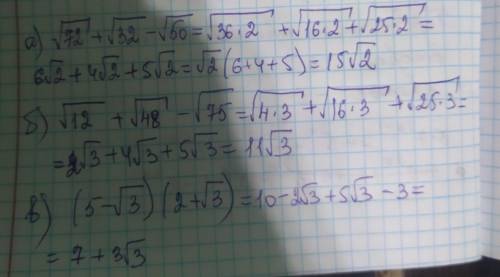 а) √72 + √32 - √50 = √36·2 + √16·2 + √25·2 =
6√2 + 4√2 + 5√2 = √2 (6+4+5) = 15√2
б) √12 + √48 - √75 = √4·3 + √16·3 + √25·3 =
= 2√3 + 4√3 + 5√3 = 11√3
в) (5-√3) (2+√3) = 10 - 2√3 + 5√3 - 3 =
= 7 + 3√3